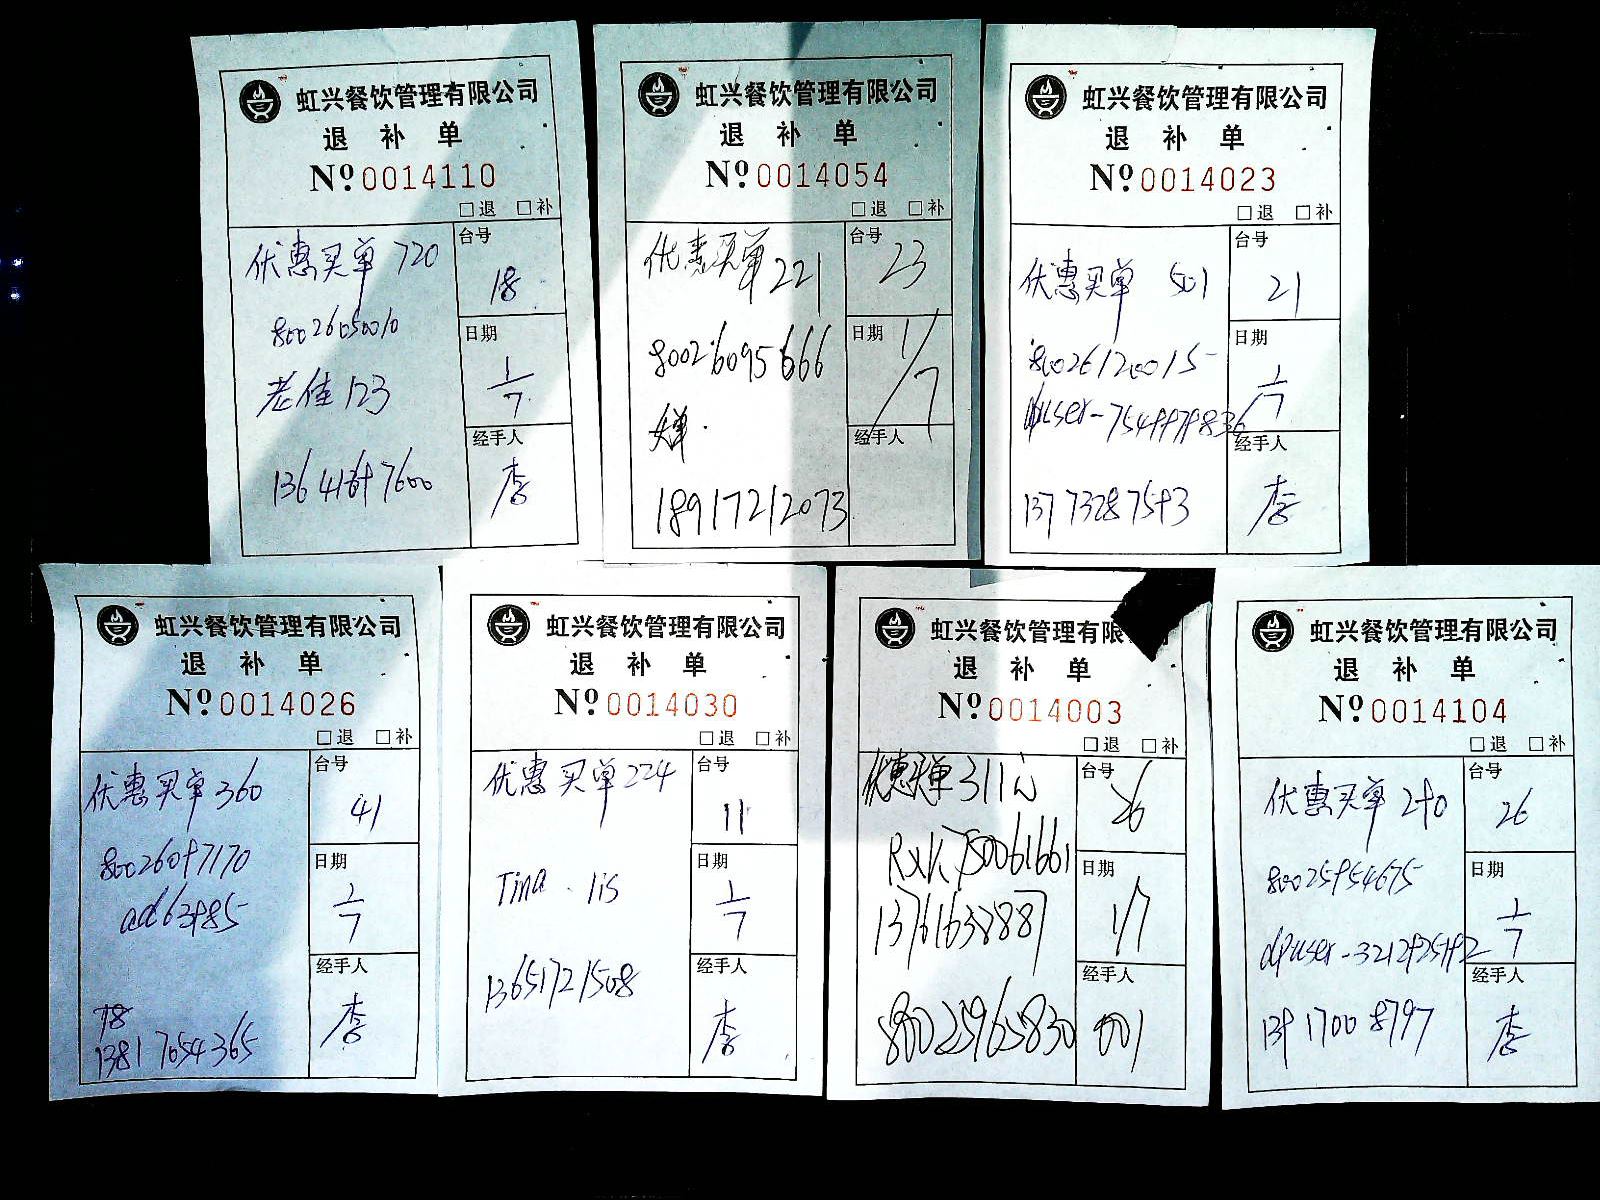 虹兴餐饮管理有限公司
退 补 单
Nº 0014110
□退 □补
优惠买单 720
台号
18
80026050010
日期
1/7
老佳123
经手人
李
虹兴餐饮管理有限公司
退 补 单
Nº 0014054
□退 □补
优惠买单 221
台号
23
80026095666
日期
1/7
经手人
18917212073
虹兴餐饮管理有限公司
退 补 单
Nº 0014023
□退 □补
优惠买单 501
台号
21
80026120015
日期
1/7
经手人
李
虹兴餐饮管理有限公司
退 补 单
Nº 0014026
□退 □补
优惠买单 360
台号
41
日期
1/7
经手人
李
13817654365
虹兴餐饮管理有限公司
退 补 单
Nº 0014030
□退 □补
优惠买单 224
台号
11
日期
1/7
Tina . lis
经手人
13651721508
李
虹兴餐饮管理有限公司
退 补 单
Nº 0014003
□退 □补
优惠买单 311元
台号
26
日期
13761632887
1/7
经手人
80025965830
001
虹兴餐饮管理有限公司
退 补 单
Nº 0014104
□退 □补
优惠买单 290
台号
26
80025954675
日期
1/7
经手人
13917008797
李